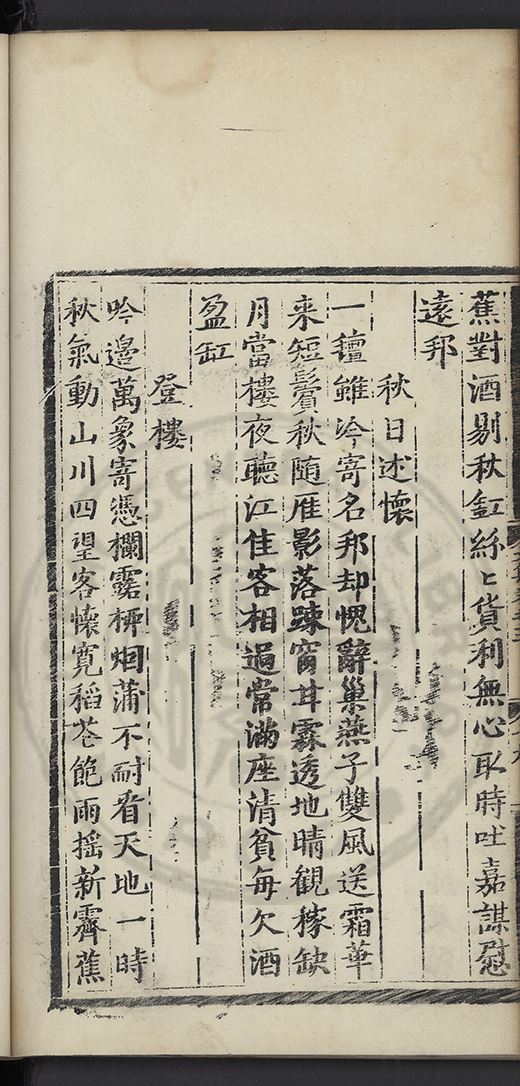 蕉對酒剔秋釭絲〻貨利無心取時吐嘉謀慰
遠邦
秋日述懷
一氊雖冷寄名邦却愧辭巢燕子雙風送霜華
来短鬢秋随雁影落踈窗甘霖透地晴観稼缺
月當樓夜聽江佳客相過常滿座清貧每欠酒
盈缸
登樓
吟邊萬象寄憑欄露栁烟蒲不耐看天地一時
秋氣動山川四望客懷寛稻苍飽雨揺新霽蕉